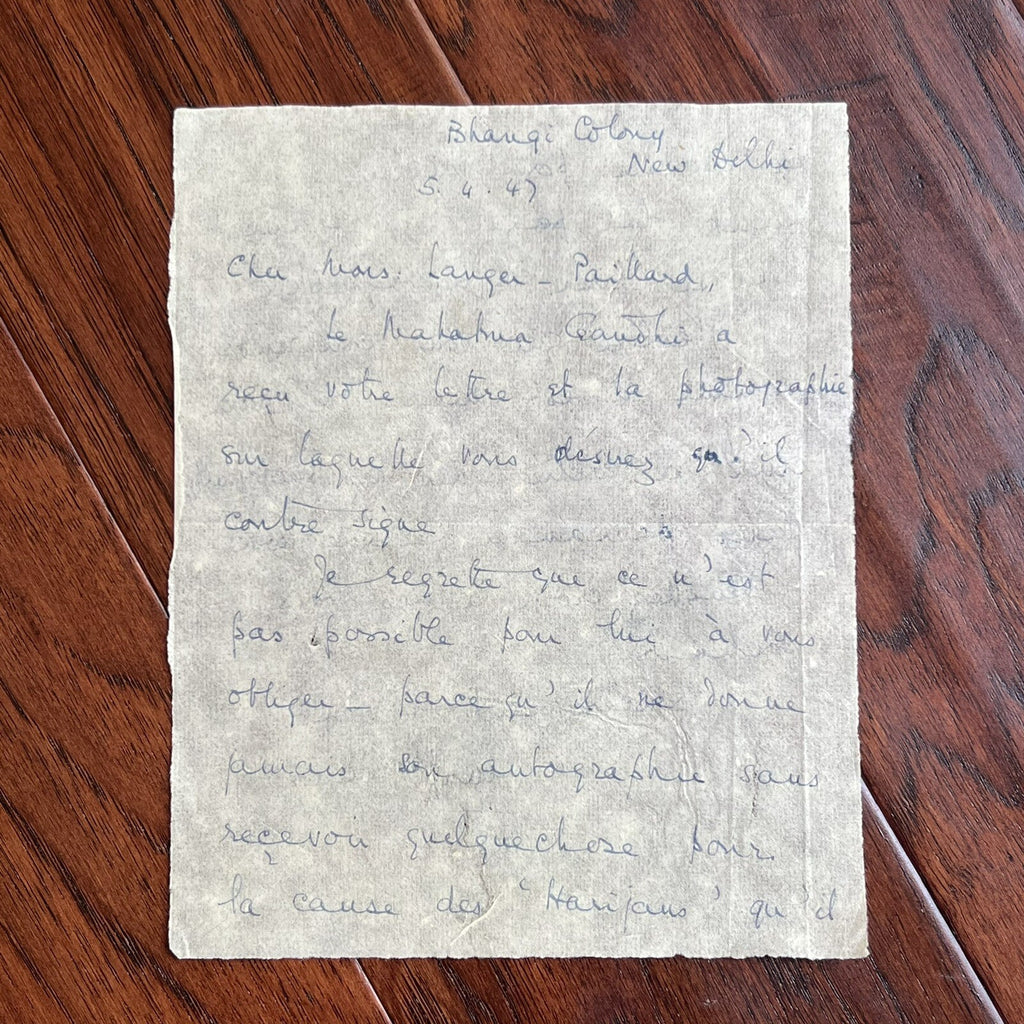 Bhangi Colony
New Delhi
5. 4. 47
Cher Mons. Langer - Paillard,
Le Mahatma Gandhi a
reçu votre lettre et la photographie
sur laquelle vous désirez qu'il
contre signe
Je regrette que ce n'est
pas possible pour lui à vous
obliger - parce qu'il ne donne
jamais son autographie sans
reçevoir quelquechose pour
la cause des 'Harijans' qu'il